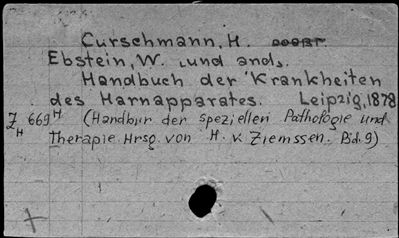 Curschmann, H.
Ebstein, W. und ands.
Handbuch der Krankheiten
des Harnapparates. Leipzig, 1878
Z 669 H (Handbur der speziellen Pathologie und
H Therapie. Hrsg. von H. v. Ziemssen. Bd. 9)